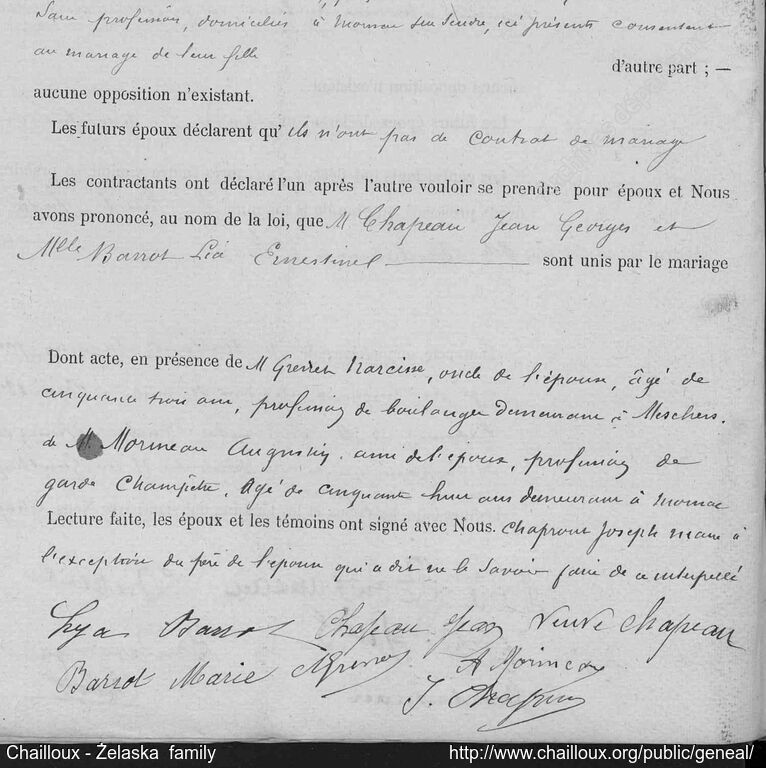 Sans profession, domiciliés à Mornac sur Seudre, ici présents consentant
au mariage de leur fille
d'autre part ; —
aucune opposition n'existant.
Les futurs époux déclarent qu'ils n'ont pas de contrat de mariage
Les contractants ont déclaré l'un après l'autre vouloir se prendre pour époux et Nous
avons prononcé, au nom de la loi, que M Chapeau Jean Georges et
Mlle Barrot Léa Ernestine sont unis par le mariage
Dont acte, en présence de M Narcisse, oncle de l'épouse, âgé de
cinquante trois ans, profession de boulanger demeurant à Meschers.
de M. Morineau Augustin, ami de l'époux, profession de
garde Champêtre, âgé de cinquante huit ans demeurant à Mornac
Lecture faite, les époux et les témoins ont signé avec Nous. Joseph maire à
l'exception du père de l'épouse qui a dit ne le savoir faire de ce interpellé
Lya Barrot Chapeau Jean Veuve Chapeau
Barrot Marie A Morineau
J.
Chailloux - Żelaska family http://www.chailloux.org/public/geneal/